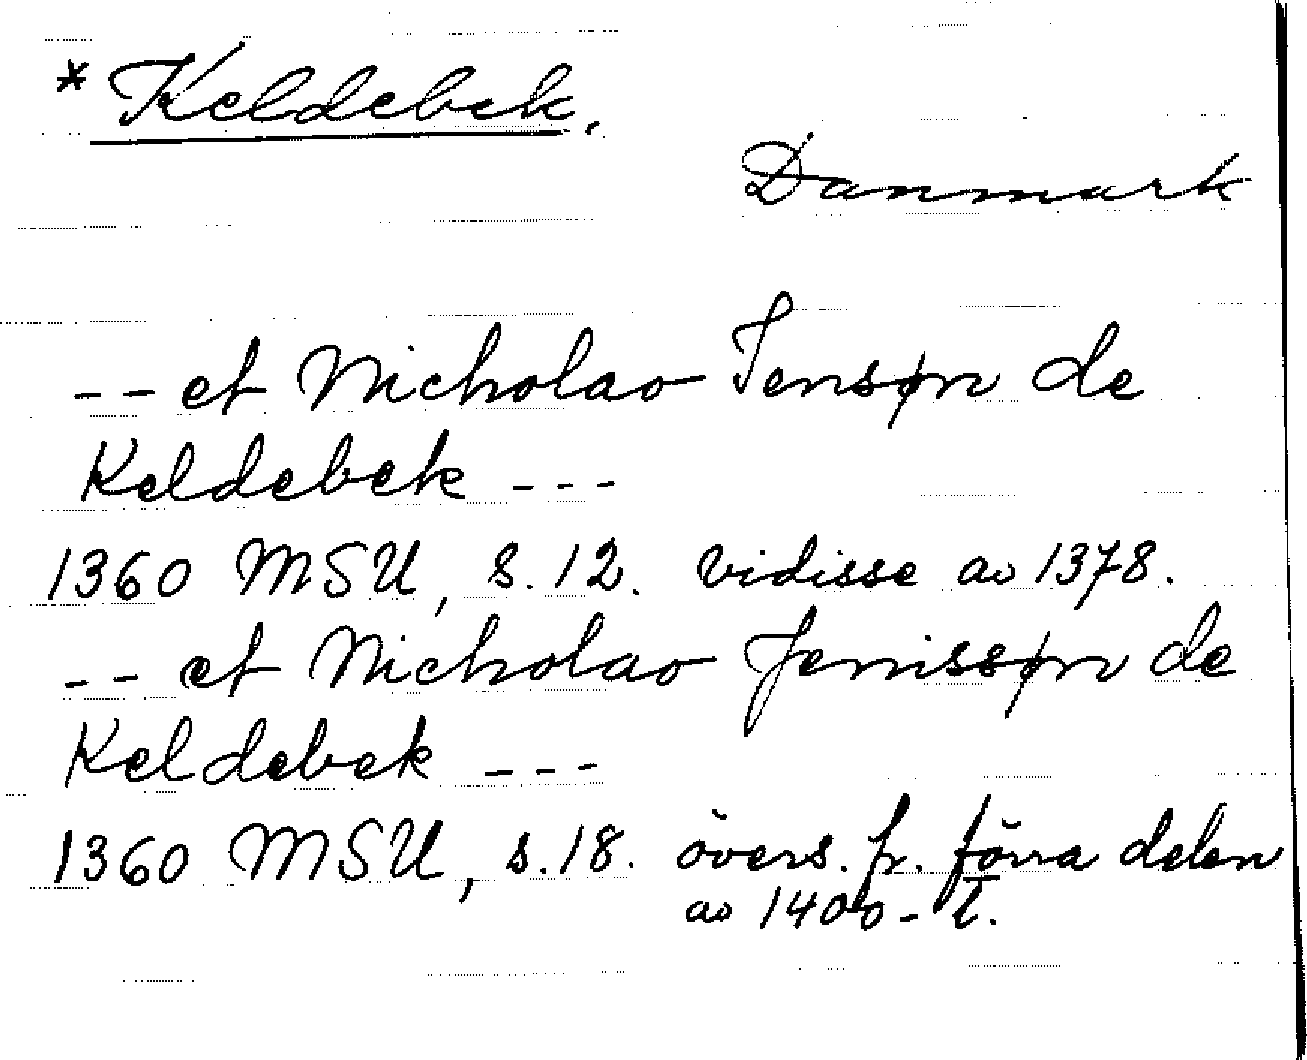 * Keldebek.
Danmark
-- et Nicholao Jensøn de
Keldebek ---
1360 MSU, s. 12. vidisse av 1378.
-- et Nicholao Jenissøn de
Keldebek ---
1360 MSU, s. 18. övers. fr. förra delen
av 1400-t.